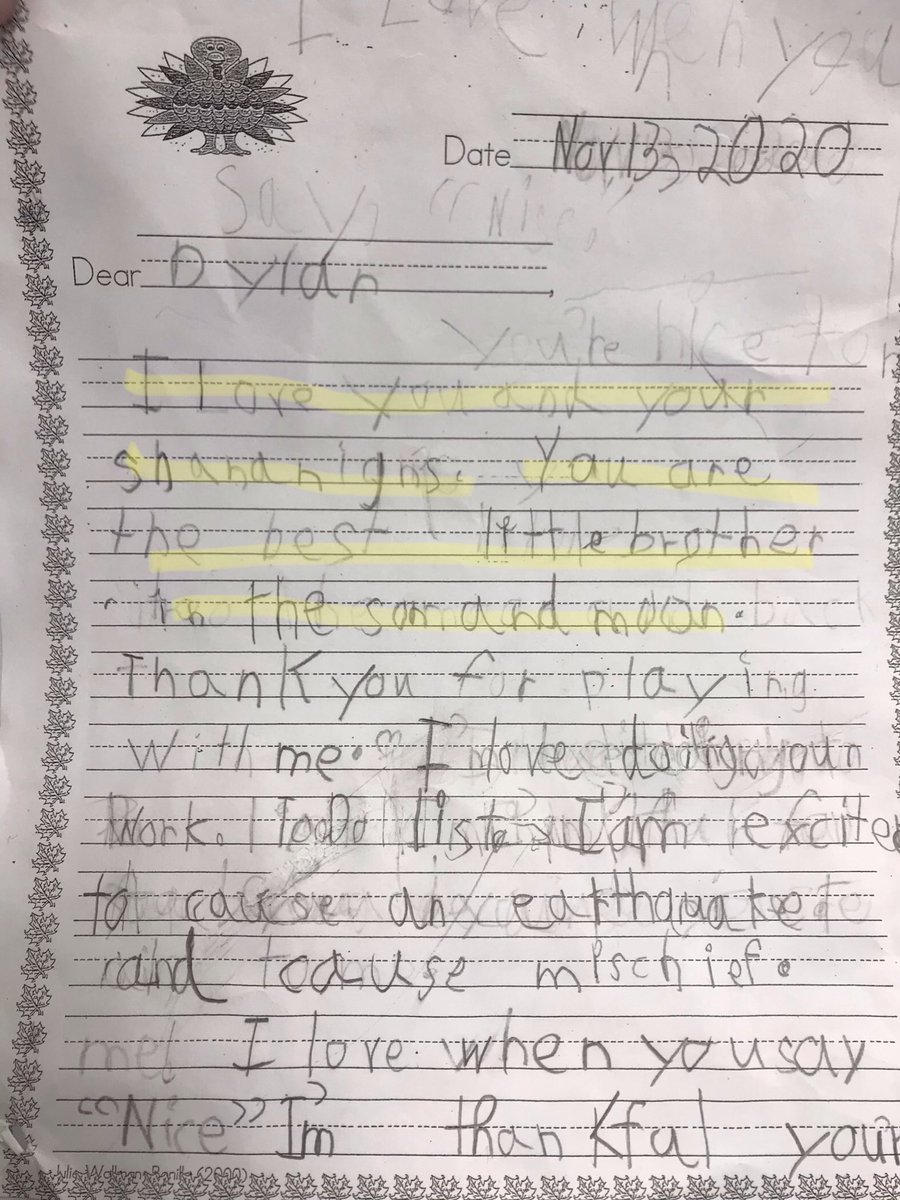 I Love when you
Date Nov 13, 2020
Say, "Nice,
Dear Dylan,
you're nice to
I Love you and your
shananigns. You are
the best little brother
in the son and moon.
Thank you for playing
with me. I love doing your
Work. ToDo list. I am excited
to cause an earthquake
and to cause mischief.
me! I love when you say
"Nice" I'm thankful your
(2000)